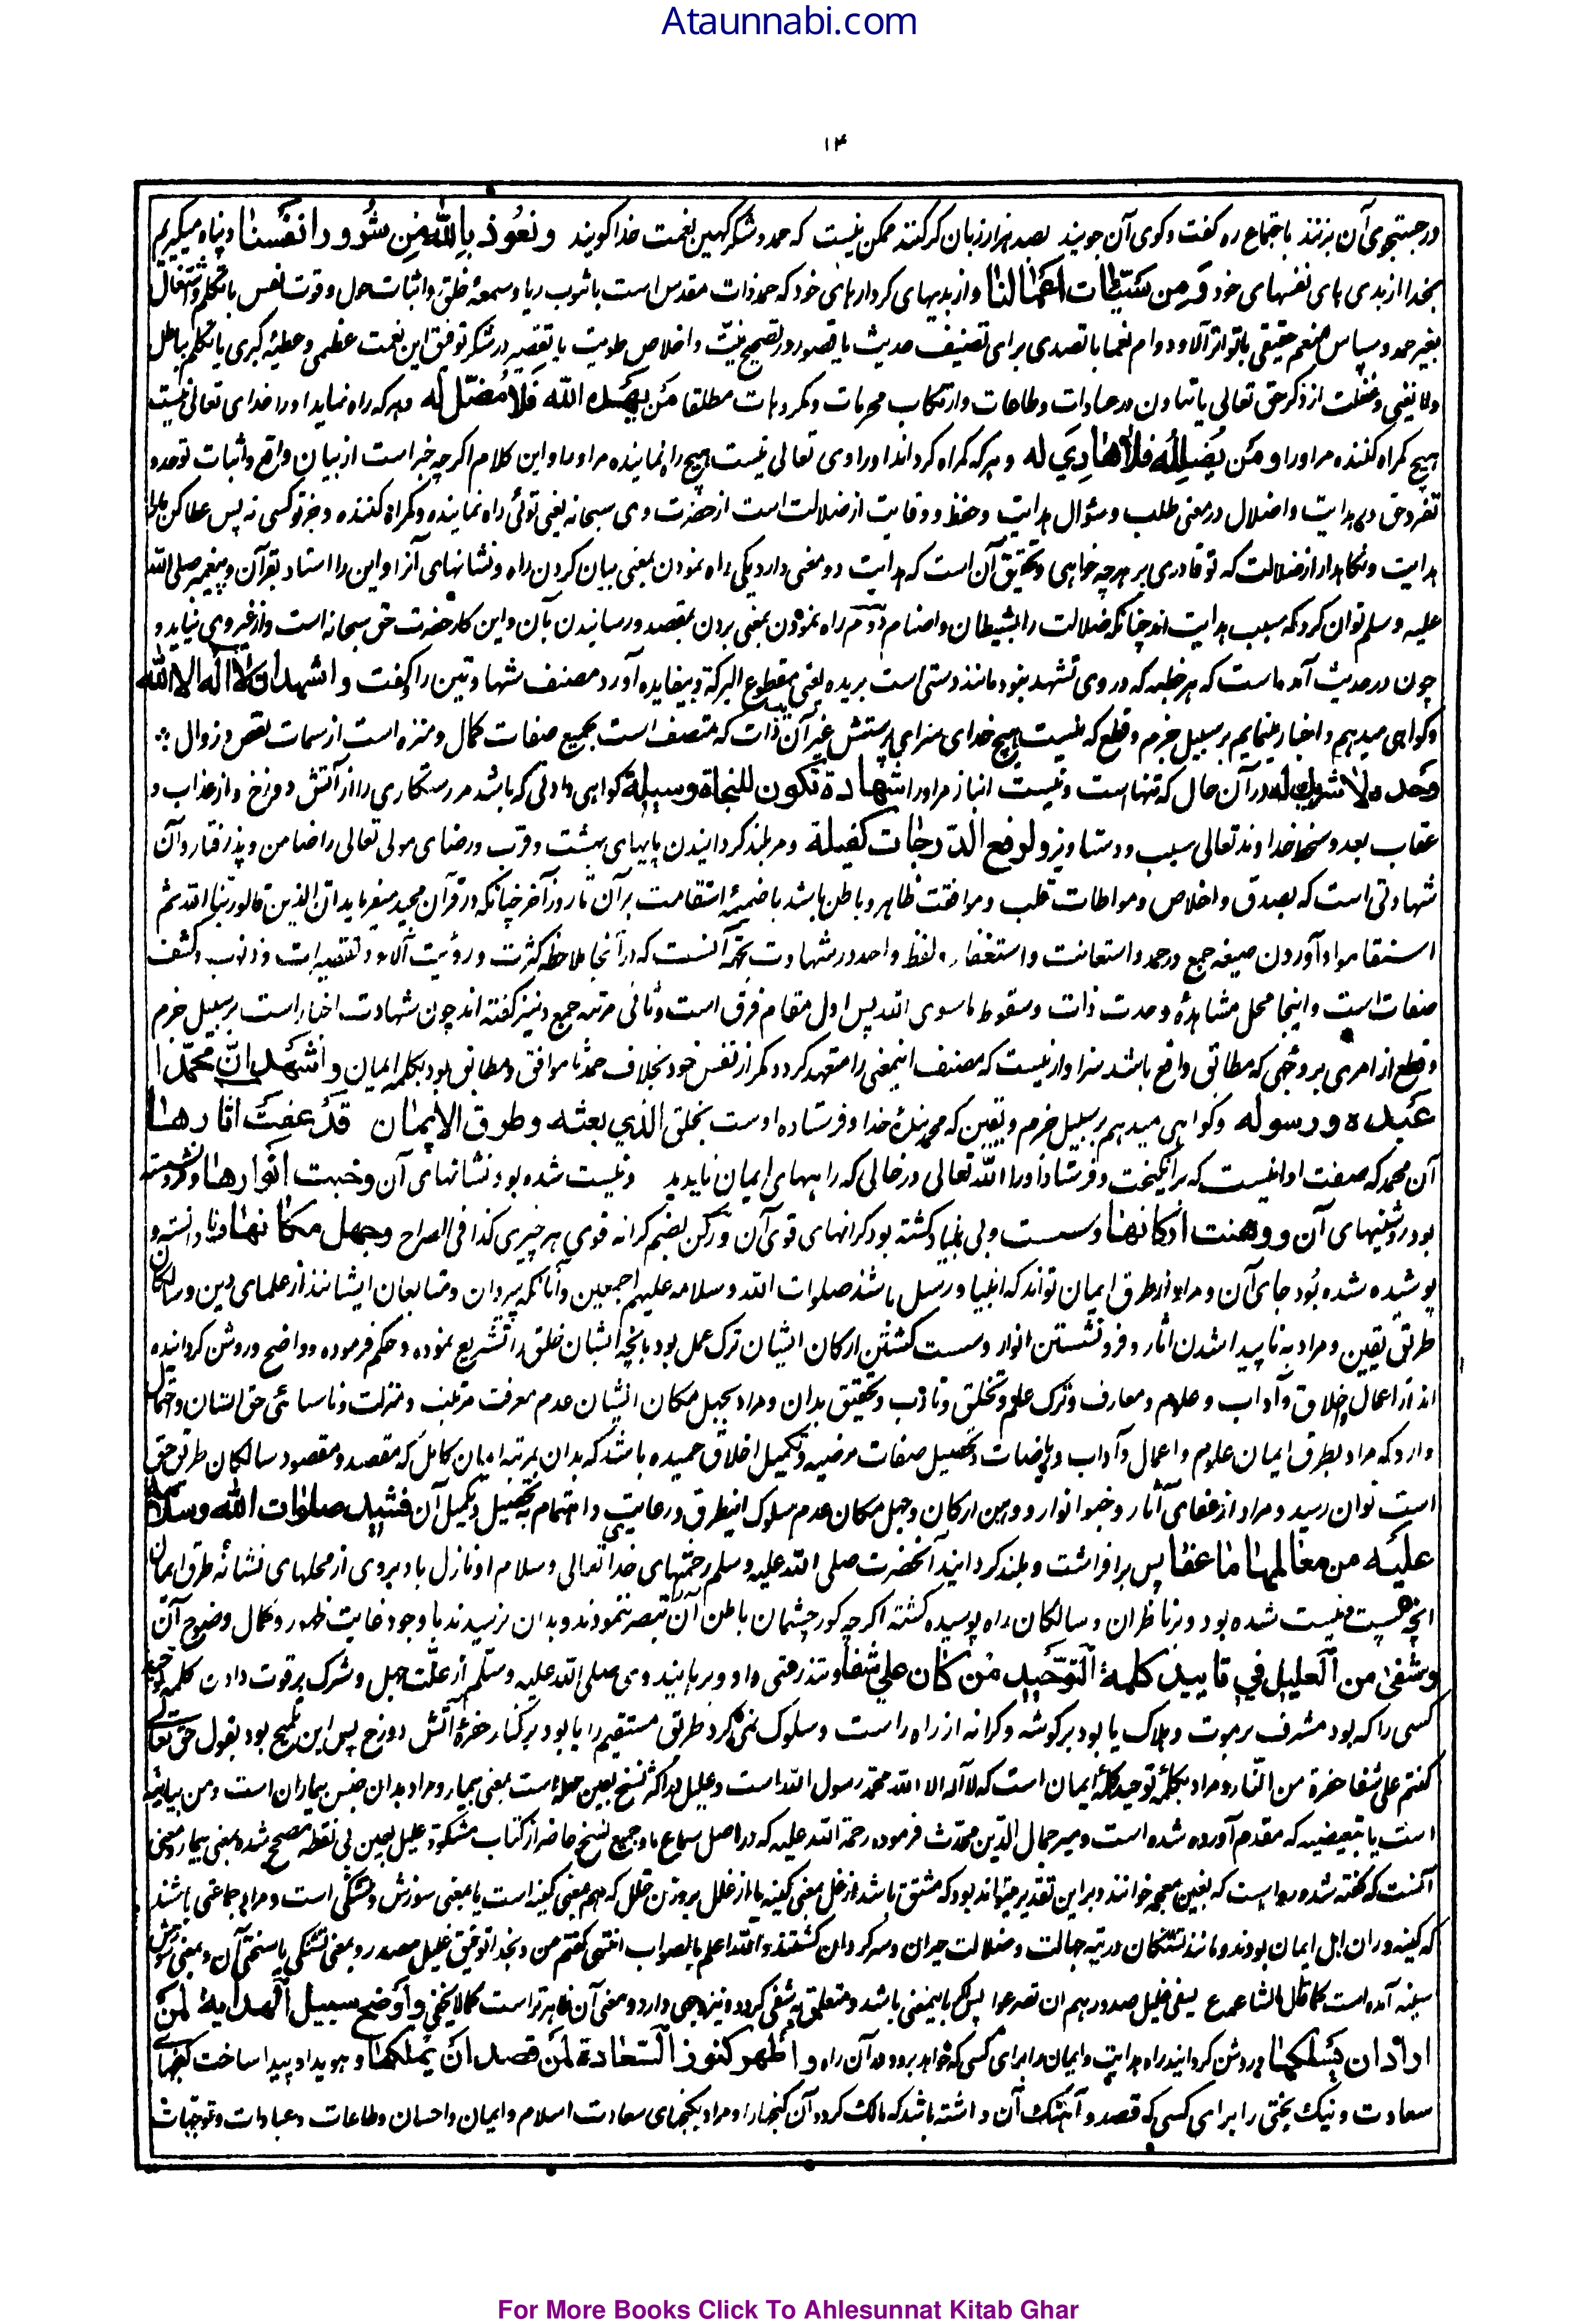 Ataunnabi.com
۱۴
در جستجوی آن برنند باجتماع ره گفت و کوی آن جویند بصد هزار زبان کر کنند ممکن نیست که حمد و شکر کهین نعمت خدا کویند ونعوذ بالله من شرور انفسنا و پناه میگیریم
بخدا از بدی های نفسهای خود ومن سیئات اعمالنا و از بدیهای کردارهای خود که حمد ذات مقدس است باشوب ریا و سمعهٔ خلق و اثبات حول و قوت نفس یا تکلم و اشتغال
بغیر حمد و سپاس منعم حقیقی با تواتر آلا و دوام نعما یا تصدی برای تصنیف حدیث با قصور در تصحیح نیت و اخلاص طویت یا تقصیر در شکر توفیق این نعمت عظمی و عطیه کبری یا تکلم بباطل
ولا یعنی و غفلت از ذکر حق تعالی یا تهاون در عبادات و طاعات و ارتکاب محرمات و مکروهات مطلقا من یهده الله فلا مضل له هر که راه نماید او را خدای تعالی نیست
هیچ کمراه کننده مر او را ومن یضلله فلا هادی له و هر که کمراه کرداند او را وی تعالی نیست هیچ راه نماینده مر او را و این کلام اکرچه خبر است از بیان واقع و اثبات توحد و
تفرد حق در هدایت و اضلال در معنی طلب و سئوال هدایت و حفظ و وقایت از ضلالت است از حضرت وی سبحانه یعنی توئی راه نماینده و کمراه کننده و جز تو کسی نه پس عطا کن ما را
هدایت و نکاهدار از ضلالت که تو قادری بر هرچه خواهی و تحقیق آن است که هدایت دو معنی دارد یکی راه نمودن بمعنی بیان کردن راه و نشانهای آنرا و این را اسناد بقرآن و پیغمبر صلی الله
علیه و سلم توان کرد که سبب هدایت اند چنانکه ضلالت را بشیطان و اصنام دوم راه نمودن بمعنی بردن بمقصد و رسانیدن بآن و این کار حضرت حق سبحانه است و از غیر وی نیاید و
چون در حدیث آمده است که هر خطبه که در وی تشهد نبود مانند دستی است بریده یعنی مقطوع البرکة و بیفایده آورد مصنف شهادتین را کفت و اشهد ان لا اله الا الله
و کواهی میدهم و اخبار مینمایم بر سبیل جزم و قطع که نیست هیچ خدای سزای پرستش غیر آن ذات که متصف است بجمیع صفات کمال و منزه است از سمات نقص و زوال
وحده لا شریک له در آن حال که تنها است و نیست انباز مر او را شهادة تکون للنجاة وسیلة کواهی دادنی که باشد مر رستکاری را از آتش دوزخ و از عذاب و
عقاب بعد و سخط خداوند تعالی سبب و دستاویز ولرفع الدرجات کفیلة و مر بلند کردانیدن پایهای بهشت و قرب و رضای مولی تعالی را ضامن و پذرفتار و آن
شهادتی است که بصدق و اخلاص و مواطات قلب و موافقت ظاهر و باطن باشد با ضمیمهٔ استقامت بر آن تا روز آخر چنانکه در قرآن مجید میفرماید ان الذین قالوا ربنا الله ثم
استقاموا و آوردن صیغه جمع در حمد و استعانت و استغفار و لفظ واحد در شهادت بجهة آنست که در آنجا ملاحظه کثرت و رؤیت آلاء و تقصیرات و ذنوب و کشف
صفات است و اینجا محل مشاهدهٔ وحدت ذات و سقوط ماسوی الله پس اول مقام فرق است و ثانی مرتبه جمع و نیز کفته اند چون شهادت اخبار است بر سبیل جزم
و قطع از امری بر وجهی که مطابق واقع باشد سزاوار نیست که مصنف اینمعنی را متعهد کردد مکر از نفس خود بخلاف حمد تا موافق و مطابق بود بکلمه ایمان و اشهد ان محمدا
عبده ورسوله و کواهی میدهم بر سبیل جزم و یقین که محمد بندهٔ خدا و فرستاده اوست بخلق الذی بعثه وطرق الایمان قد عفت آثارها
آن محمد که صفت او اینست که برانکیخت و فرستاد او را الله تعالی در حالی که راههای ایمان ناپدید و نیست شده بود نشانهای آن وخبت انوارها و فرو نشسته
بود روشنیهای آن ووهنت ارکانها و سست و بی بنیاد کشته بود کرانهای قوی آن و رکن بضم کرانه قوی هر چیزی کذا فی الصراح وجهل مکانها و نا دانسته و
پوشیده شده بود جای آن و مراد از طرق ایمان تواند که انبیا و رسل باشند صلوات الله و سلامه علیهم اجمعین و آنانکه پیروان و متابعان ایشانند از علمای دین و سالکان
طریق یقین و مراد به ناپیدا شدن آثار و فرو نشستن انوار و سست کشتن ارکان ایشان ترک عمل بود بانچه ایشان خلق را تشریع نموده و حکم فرموده و واضح و روشن کردانیده
اند از اعمال و اخلاق و آداب و علوم و معارف و ترک علم و تخلق و تادب و تحقیق بدان و مراد بجهل مکان ایشان عدم معرفت مرتبت و منزلت و ناسپاسی حق ایشان و احتمال
دارد که مراد بطرق ایمان علوم و اعمال و آداب و ریاضات و تحصیل صفات مرضیه و تکمیل اخلاق حمیده باشد که بدان بمرتبه ایمان کامل که مقصد و مقصود سالکان طریق حق
است توان رسید و مراد از عفای آثار و خبو انوار و وهن ارکان و جهل مکان عدم سلوک اینطرق و رعایت و اهتمام به تحصیل و تکمیل آن فشید صلوات الله وسلامه
علیه من معالمها ما عفا پس برافراشت و بلند کردانید آنحضرت صلی الله علیه و سلم رحمتهای خدا تعالی و سلام او نازل باد بروی از محلهای نشانهٔ طرق ایمان
انچه پست و نیست شده بود و بر ناظران و سالکان راه پوسیده کشته اکرچه کور چشمان باطن آن تبصر ننمودند و بدان نرسیدند با وجود غایت ظهور و کمال وضوح آن
وشفی من العلیل فی تایید کلمة التوحید من کان علی شفا و تندرستی داد و برهانید وی صلی الله علیه و سلم از علت جهل و شرک بر قوت دادن کلمه توحید
کسی را که بود مشرف بر موت و هلاک یا بود بر کوشه و کرانه از راه راست و سلوک نمی کرد طریق مستقیم را یا بود بر کنار حفرهٔ آتش دوزخ پس این تلمیح بود بقول حق تعالی
کنتم علی شفا حفرة من النار و مراد بکلمه توحید کلمهٔ ایمان است که لا اله الا الله محمد رسول الله است و علیل در اکثر نسخ بعین مهمله است بمعنی بیمار و مراد بدان جنس بیماران است و من بیانیه
است یا تبعیضیه که مقدم آورده شده است و میر جمال الدین محدث فرموده رحمة الله علیه که در اصل سماع ما و جمیع نسخ حاضر از کتاب مشکوة علیل بعین بی نقطه مصحح شده بمعنی بیمار و معنی
آنست که کفته شده و روا است که بغین معجمه خوانند و براین تقدیر میتواند بود که مشتق باشد از غل بمعنی کینه یا از غلل بر وزن خلل که هم بمعنی کینه است یا بمعنی سوزش و تشنکی است و مراد جماعتی باشند
که کینه وران اهل ایمان بودند و مانند تشنکان در تیه جهالت و ضلالت حیران و سرکردان کشتند و الله اعلم بالصواب انتهی کفتم من و بخدا توفیق غلیل مصدر و بمعنی تشنکی یا سختی آن و بمعنی سوزش
سینه آمده است کما قال الشاعر ع یشفی غلیل صدورهم ان تصرعوا پس باینمعنی باشد و متعلق به شفی کردد و نیز وجهی دارد و معنی آن ظاهرتر است کما لا یخفی واوضح سبیل الهدایة لمن
اراد ان یسلکها و روشن کردانید راه هدایت و ایمان را برای کسی که خواهد برود در آن راه واظهر کنوز السعادة لمن قصد ان یملکها و هویدا و پیدا ساخت کنجهای
سعادت و نیک بختی را برای کسی که قصد و آهنک آن داشته باشد که مالک کردد آن کنجها را و مراد بکنجهای سعادت اسلام و ایمان و احسان و طاعات و عبادات و توجهات
For More Books Click To Ahlesunnat Kitab Ghar